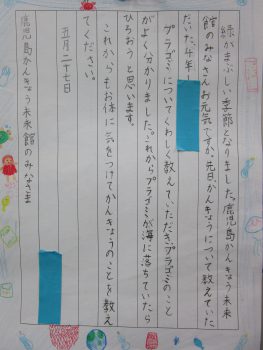 緑がまぶしい季節となりました。鹿児島かんきょう未来
館のみなさんお元気ですか。先日、かんきょうについて教えていた
だいた、4年
プラゴミについてくわしく教えていただき、プラゴミのこと
がよく分かりました。これからプラゴミが海に落ちていたら
ひろおうと思います。
これからもお体に気をつけてかんきょうのことを教え
てください。
五月二十七日
鹿児島かんきょう未来館のみなさま